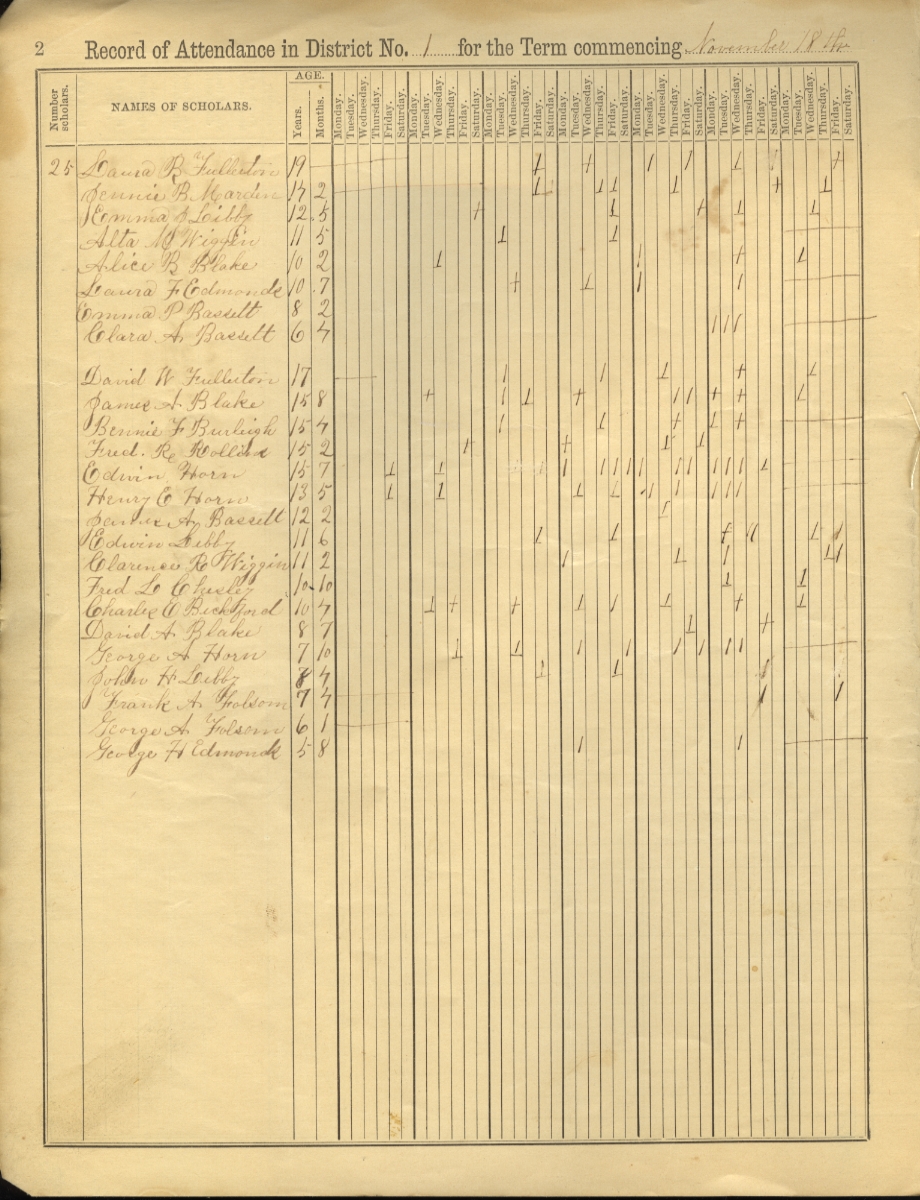 2 Record of Attendance in District No. 1 for the Term commencing November 18th
Number scholars.
NAMES OF SCHOLARS.
AGE.
Years. Months.
Monday. Tuesday. Wednesday. Thursday. Friday. Saturday. Monday. Tuesday. Wednesday. Thursday. Friday. Saturday. Monday. Tuesday. Wednesday. Thursday. Friday. Saturday. Monday. Tuesday. Wednesday. Thursday. Friday. Saturday. Monday. Tuesday. Wednesday. Thursday. Friday. Saturday. Monday. Tuesday. Wednesday. Thursday. Friday. Saturday. Monday. Tuesday. Wednesday. Thursday. Friday. Saturday.
25 Laura B Fullerton 19
Jennie B Marden 14 2
Emma S Libby 12 5
Alta M Wiggin 11 5
Alice B Blake 10 2
Laura F Edmonds 10 7
Emma P Bassett 8 2
Clara A Bassett 6 4
David W Fullerton 17
James A Blake 15 8
Bennie F Burleigh 15 4
Fred. R. Rollins 15 2
Edwin Horn 15 7
Henry E Horn 13 5
James A Bassett 12 2
Edwin Libby 11 6
Clarence R Wiggin 11 2
Fred L Chesley 10 10
Charlie E Bickford 10 4
David A Blake 8 7
George A Horn 7 10
John H Libby 8 4
Frank A Folsom 7 4
George A Folsom 6 1
George H Edmonds 5 8